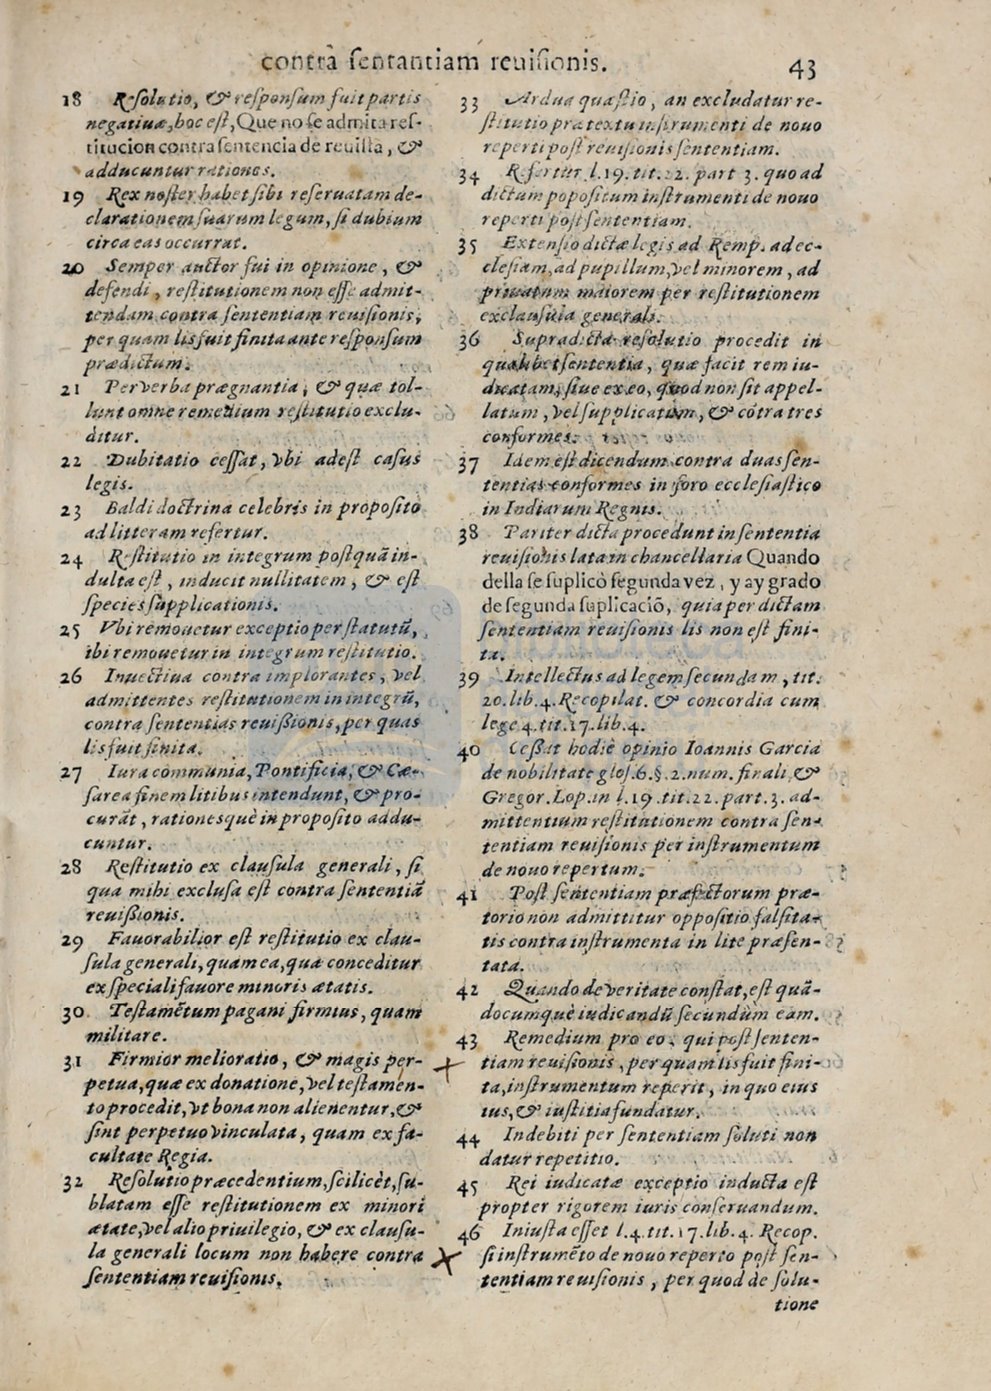 contrà sentantiam reuisionis.
43
18 Resolutio, & responsum fuit partis
negatiuæ, hoc est, Que no se admita res-
titucion contra sentencia de reuista, &
adducuntur rationes.
19 Rex noster habet sibi reseruatam de-
clarationem suarum legum, si dubium
circa eas occurrat.
20 Semper auctor fui in opinione, &
defendi, restitutionem non esse admit-
tendam contra sententiam reuisionis,
per quam lis fuit finita ante responsum
prædictum.
21 Per verba prægnantia, & quæ tol-
lunt omne remedium restitutio exclu-
ditur.
22 Dubitatio cessat, vbi adest casus
legis.
23 Baldi doctrina celebris in proposito
ad litteram refertur.
24 Restitutio in integrum postquã in-
dulta est, inducit nullitatem, & est
species supplicationis.
25 Vbi remouetur exceptio per statutũ,
ibi remouetur in integrum restitutio.
26 Inuectiua contra implorantes, vel
admittentes restitutionem in integrũ,
contra sententias reuißionis, per quas
lis fuit finita.
27 Iura communia, Pontificia, & Cæ-
sarea finem litibus intendunt, & pro-
curãt, rationesquè in proposito addu-
cuntur.
28 Restitutio ex clausula generali, si
qua mihi exclusa est contra sententiã
reuißionis.
29 Fauorabilior est restitutio ex clau-
sula generali, quam ea, quæ conceditur
ex speciali fauore minoris ætatis.
30 Testamẽtum pagani firmius, quam
militare.
31 Firmior melioratio, & magis per-
petua, quæ ex donatione, vel testamen-
to procedit, vt bona non alienentur, &
sint perpetuo vinculata, quam ex fa-
cultate Regia.
32 Resolutio præcedentium, scilicèt, su-
blatam esse restitutionem ex minori
ætate, vel alio priuilegio, & ex clausu-
la generali locum non habere contra
sententiam reuisionis.
33 Ardua quæstio, an excludatur re-
stitutio prætextu instrumenti de nouo
reperti post reuisionis sententiam.
34 Refertur l. 19. tit. 22. part 3. quo ad
dictum popositum instrumenti de nouo
reperti post sententiam.
35 Extensio dictæ legis ad Remp. ad ec-
clesiam, ad pupillum, vel minorem, ad
priuatum maiorem per restitutionem
ex clausula generali.
36 Supradicta resolutio procedit in
qualibet sententia, quæ facit rem iu-
dicatam, siue ex eo, quod non sit appel-
latum, vel supplicatum, & cõtra tres
conformes.
37 Idem est dicendum contra duas sen-
tentias conformes in foro ecclesiastico
in Indiarum Regnis.
38 Pariter dicta procedunt in sententia
reuisionis lata in chancellaria Quando
della se suplicò segunda vez, y ay grado
de segunda suplicaciõ, quia per dictam
sententiam reuisionis lis non est fini-
ta.
39 Intellectus ad legem secundam, tit.
20. lib. 4. Recopilat. & concordia cum
lege 4. tit. 17. lib. 4.
40 Ceßat hodiè opinio Ioannis Garcia
de nobilitate glos. 6. §. 2. num. finali, &
Gregor. Lop. in l. 19. tit. 22. part. 3. ad-
mittentium restitutionem contra sen-
tentiam reuisionis per instrumentum
de nouo repertum.
41 Post sententiam præfectorum præ-
torio non admittitur oppositio falsita-
tis contra instrumenta in lite præsen-
tata.
42 Quando de veritate constat, est quã-
documquè iudicandũ secundùm eam.
43 Remedium pro eo, qui post senten-
tiam reuisionis, per quam lis fuit fini-
ta, instrumentum reperit, in quo eius
ius, & iustitia fundatur.
44 Indebiti per sententiam soluti non
datur repetitio.
45 Rei iudicatæ exceptio inducta est
propter rigorem iuris conseruandum.
46 Iniusta esset l. 4. tit. 17. lib. 4. Recop.
si instrumẽto de nouo reperto post sen-
tentiam reuisionis, per quod de solu-
tione